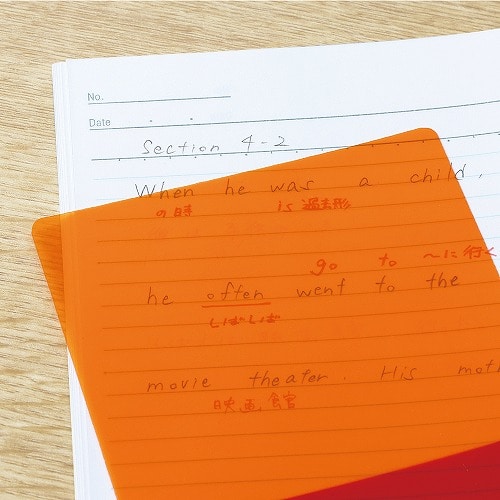 No.
Date
Section 4-2
When he was a child,
の時 is 過去形
go to ~に行く
he often went to the
しばしば
movie theater. His moth
映画館